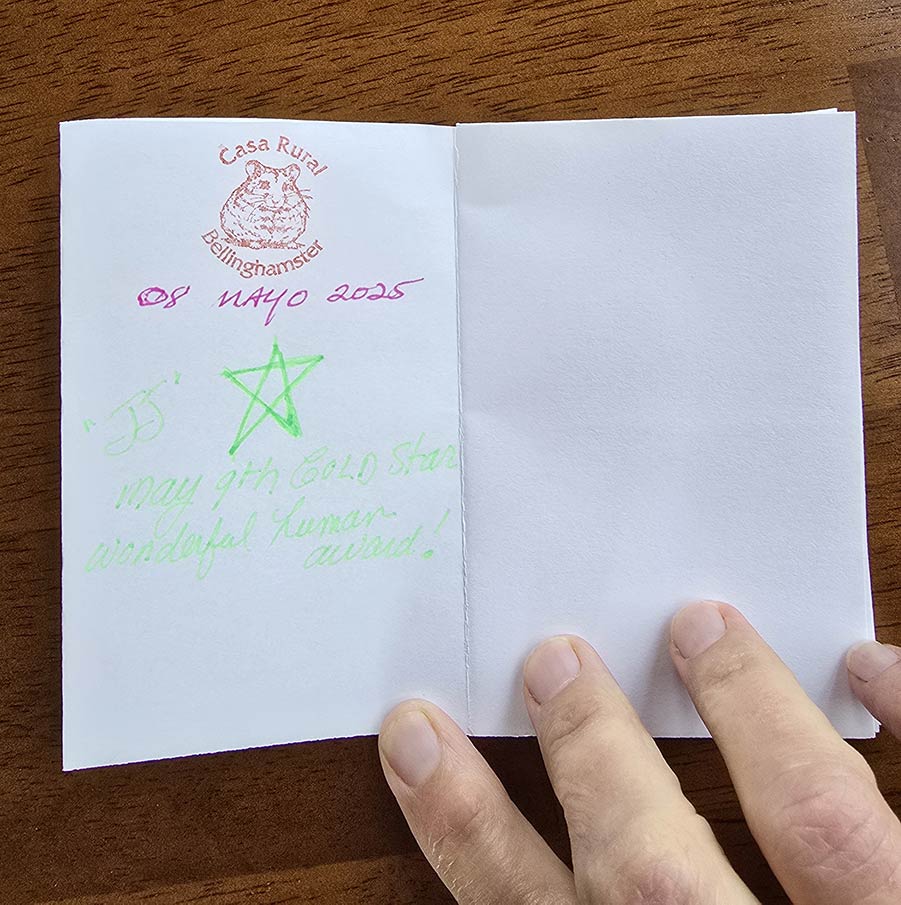 Casa Rural
Bellinghamster
08 MAYO 2025
"JJ"
May 9th GOLD Star
wonderful human
award!